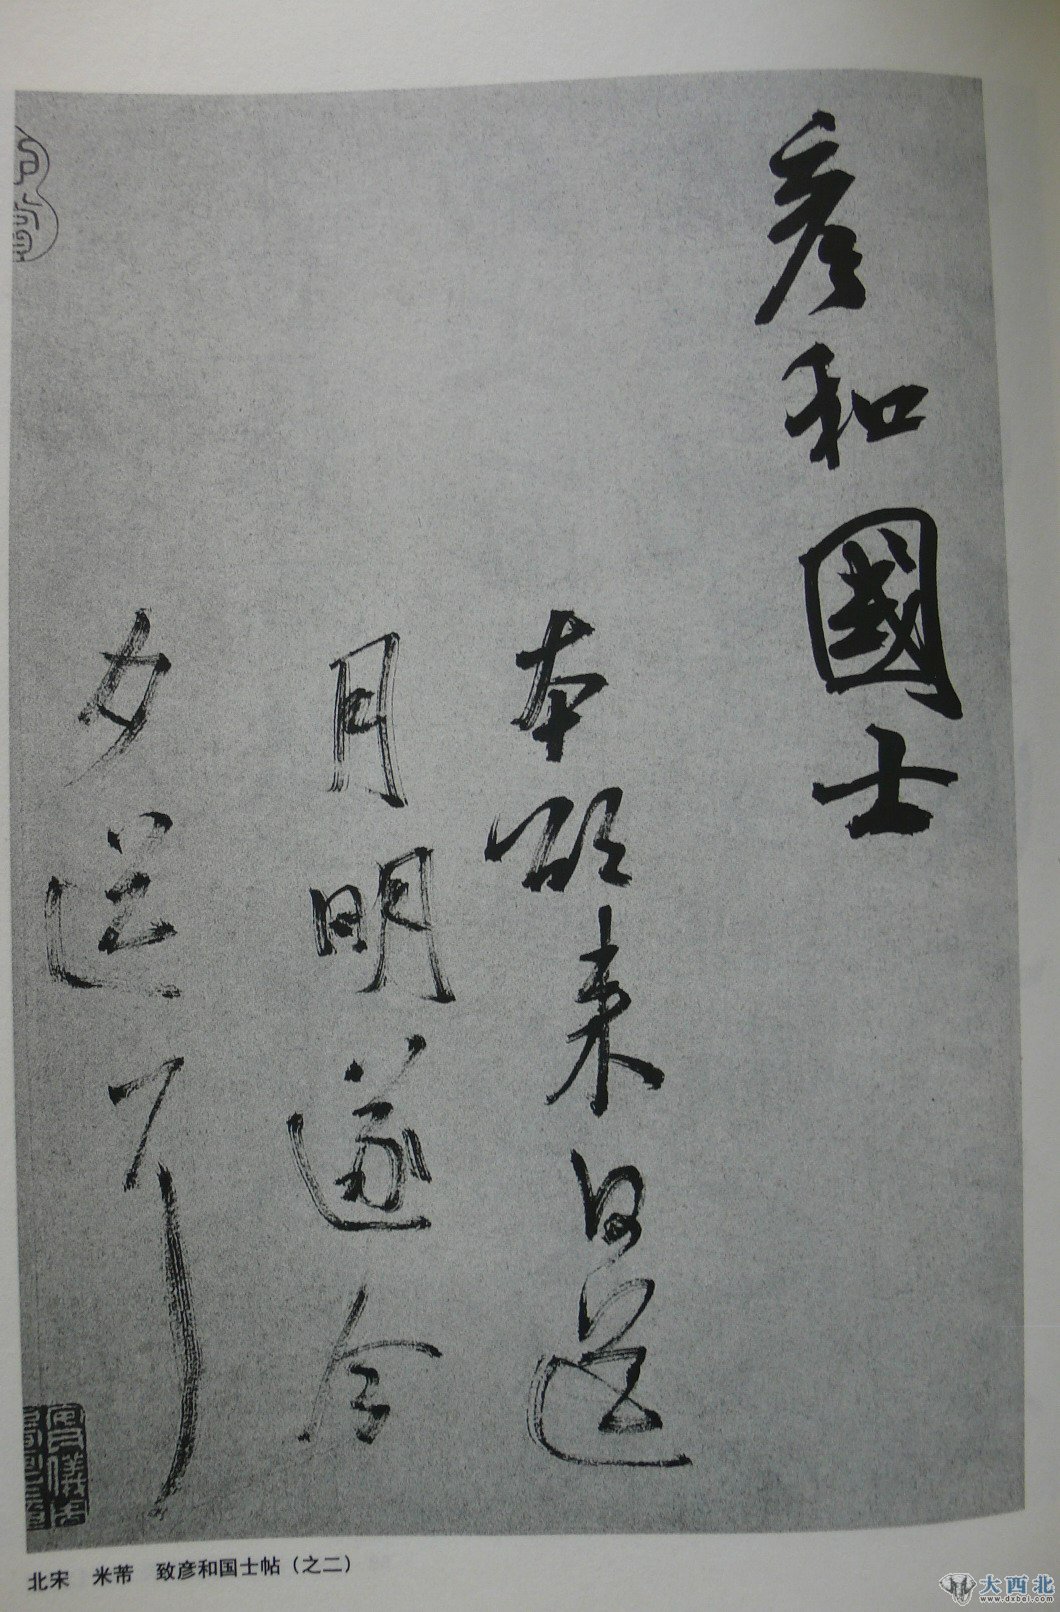 彥和國士
本欲来日送
月明遂今
夕送耳
北宋 米芾 致彦和国士帖（之二）
大西北
www.dxbei.com